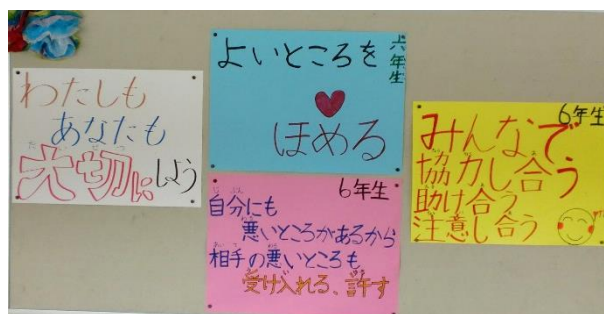 わたしも
あなたも
大切にしよう
六年生
よいところを
ほめる
6年生
自分にも
悪いところがあるから
相手の悪いところも
受け入れる、許す
6年生
みんなで
協力し合う
助け合う
注意し合う